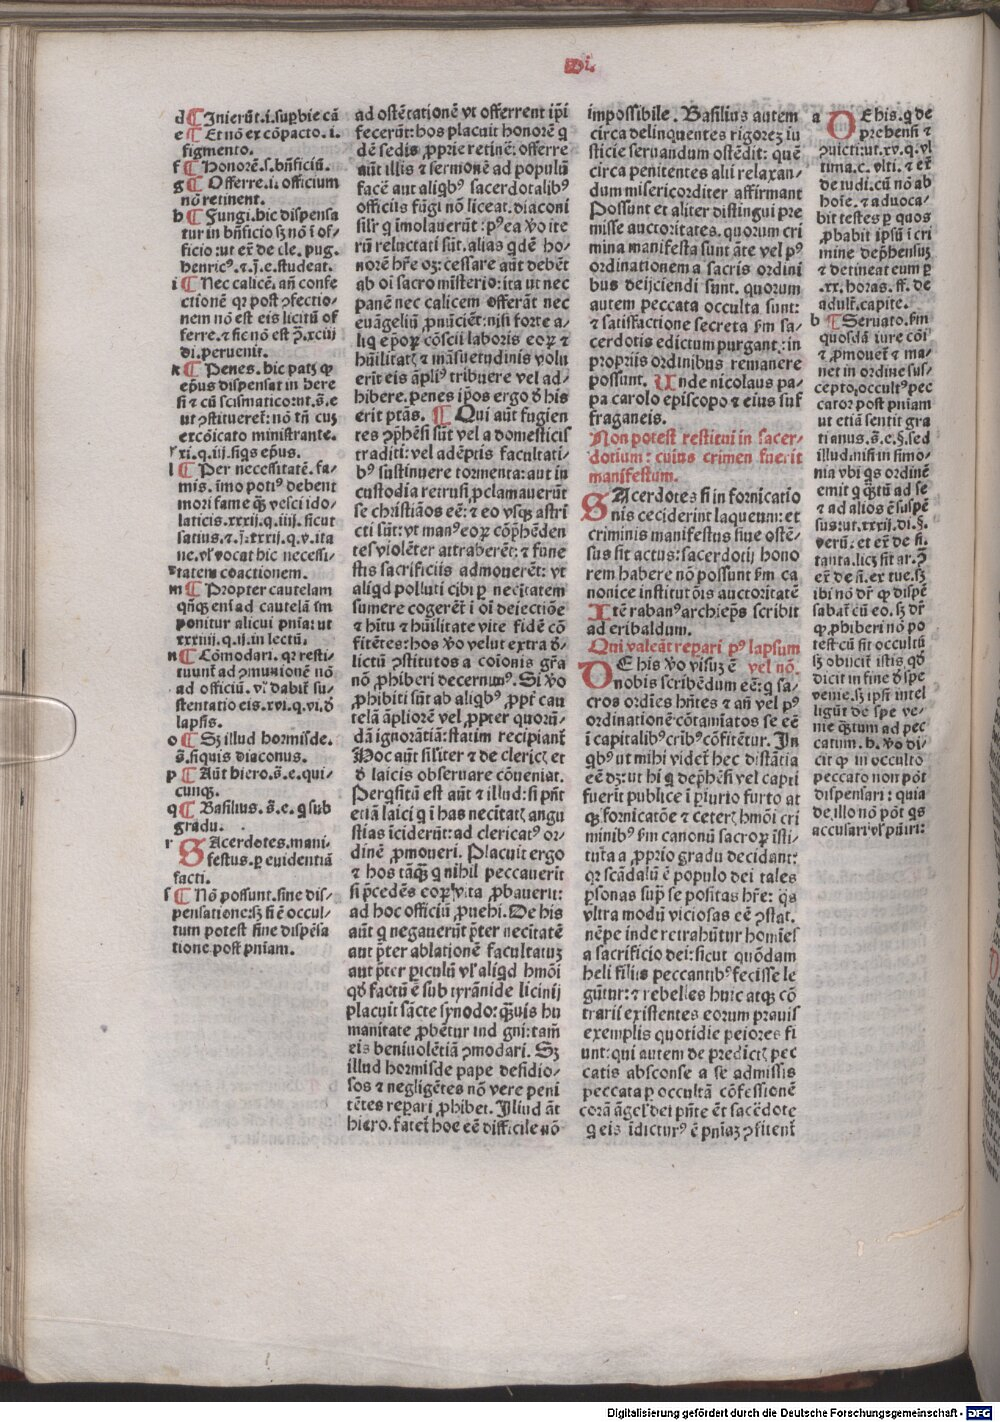 Di.
d ¶ Inierūt.i.suꝑbie cā
e ¶ Et nō ex cōpacto.i.
figmento.
f ¶ Honorē.s.bn̄ficiū.
g ¶ Offerre.i. officium
nō retinent.
h ¶ Fungi.hic dispensa
tur in bn̄ficio sꝫ nō ī of⸗
ficio:ut ex̄ de cle. pug.
henricꝰ.⁊.j̄.e.studeat.
i ¶ Nec calicē. an̄ confe
ctionē qꝛ post ꝯfectio⸗
nem nō est eis licitū of
ferre.⁊ sic nō est ꝯ̄.xciij
di.peruenit.
k ¶ Penes. hic patꝫ ꝙ
ep̄us dispensat in here
si ⁊ cū scismaticoꝛūt.s̄.e
ut ꝯstitueret̄: nō tn̄ cuꝫ
excōicato ministrante.
xi.q.iij.siqs ep̄us.
l ¶ Per necessitatē. fa⸗
mis. īmo potiꝰ debent
mori fame qꝫ vesci ido⸗
laticis.xxxij.q.iiij.sicut
satius.⁊.j̄.xxxij.q.v.ita
ne.vꝉ vocat hic necessi⸗
tatem coactionem.
m ¶ Propter cautelam
qn̄qꝫ eni ad cautelā im
ponitur alicui pn̄ia: ut
xxxiij.q.ij.in lectū.
n ¶ Cōmodari. qꝛ resti⸗
tuunt̄ ad ꝯmunionē nō
ad officiū. vꝉ dabit̄ su⸗
stentatio eis.xvi.q.vi.ð
lapsis.
o ¶ Sꝫ illud hormisde.
s̄.siquis diaconus.
p ¶ Aūt hiero.s̄.e.qui⸗
cunqꝫ.
q ¶ Basilius. s̄.e. q̄ sub
gradu.
r SAcerdotes.mani⸗
festus.ꝑ euidentiā
facti.
s ¶ Nō possunt.sine dis⸗
pensatione:sꝫ si ē occul⸗
tum potest sine dispēsa
tione post pn̄iam.
ad ostētationē vt offerrent ip̄i
fecerūt: hos placuit honorē q̄
dē sedis ꝓprie retinē: offerre
aūt illis ⁊ sermonē ad populū
facē aut aliqbꝰ sacerdotalibꝰ
officiis fūgi nō liceat. diaconi
silr̄ q̄ īmolauerūt: pꝰea v̊o ite
rū reluctati sūt. alias q̄dē ho⸗
norē hr̄e oꝫ: cessare aūt debēt
ab oī sacro misterio: ita ut nec
panē nec calicem offerāt nec
euāgeliū ꝓnūciēt: nisi forte a⸗
liq ep̄oꝝ cōscii laboris eoꝝ ⁊
hūilitatꝫ ⁊ māsuetudinis volu
erīt eis āpliꝰ tribuere vel ad⸗
hibere. penes ip̄os ergo ð his
erit ptās. ¶ Qui aūt fugien
tes ꝯp̄hēsi sūt vel a domesticis
traditi: vel adēptis facultati⸗
bꝰ sustinuere tormenta: aut in
custodia retrusi ꝓclamauerūt
se christiāos eē: ⁊ eo vsqꝫ astri
cti sūt: vt manꝰ eoꝝ cōp̄hēden
tes violēter attraherēt: ⁊ fune
stis sacrificiis admouerēt: vt
aliqd polluti cibi ꝑ necitatem
sumere cogerēt ī oī deiectiōe
⁊ hītu ⁊ hūilitate vite fidē cō
fitētes: hos v̊o velut extra ð⸗
lictū ꝯstitutos a cōīonis gr̄a
nō ꝓhiberi decernimꝰ. Si v̊o
ꝓhibiti sūt ab aliqbꝰ ꝓpt̄ cau
telā āpliorē vel ꝓpter quorū⸗
dā ignoratiā: statim recipiant̄
Hoc aūt sil̄iter ⁊ de clericꝫ et
ð laicis obseruare cōueniat.
Perq̄sitū est aūt ⁊ illud: si pn̄t
etiā laici q̄ ī has necitatꝫ angu
stias īciderūt: ad clericatꝰ or⸗
dinē ꝓmoueri. Placuit ergo
⁊ hos tāqꝫ q nihil peccauerīt
si p̄cedēs eoꝝ vita ꝓbauerit:
ad hoc officiū ꝓuehi. De his
aūt q̄ negauerūt p̄ter necitatē
aut p̄ter ablationē facultatuꝫ
aut p̄ter ꝑiculū vꝉ aliqd hmōi
qð factū ē sub tyrānide licinij
placuit sācte synodo: q̄uis hu
manitate ꝓbētur indigni: tam̄
eis beniuolētiā ꝯmodari. Sꝫ
illud hormisde pape desidio⸗
sos ⁊ negligētes nō vere peni
tētes reꝑari ꝓhibet. Illud aūt
hiero. fatet̄ hoc eē difficile nō
impossibile. Basilius autem
circa delinquentes rigoreꝫ iu
sticie seruandum ostēdit: quē
circa penitentes alii relaxan⸗
dum misericorditer affirmant
Possunt et aliter distingui pre
misse auctoritates. quorum cri
mina manifesta sunt āte vel pꝰ
ordinationem a sacris ordini
bus deijciendi sunt. quorum
autem peccata occulta sunt:
⁊ satisfactione secreta s̄m sa⸗
cerdotis edictum purgant̄: in
propriis ordinibus remanere
possunt. Unde nicolaus pa⸗
pa carolo episcopo ⁊ eius suf
fraganeis.
Non potest restitui in sacer⸗
dotium: cuius crimen fuerit
manifestum.
SAcerdotes si in fornicatio
nis ceciderint laqueum: et
criminis manifestus siue ostē⸗
sus sit actus: sacerdotij hono
rem habere nō possunt s̄m ca
nonice institutōis auctoritatē
Itē rabanꝰ archiep̄s scribit
ad eribaldum.
Qui valeāt reꝑari pꝰ lapsum
vel nō.
DE his v̊o visuꝫ ē
nobis scribēdum eē: q̄ sa⸗
cros ordīes hn̄tes ⁊ an̄ vel pꝰ
ordinationē cōtamīatos se eē
ī capitalibꝰ crībꝰ cōfitētur. In
qbꝰ ut mihi videt̄ hec distātia
eē dꝫ: ut hi q̄ dep̄hēsi vel capti
fuerīt publice ī ꝑiurio furto at
qꝫ fornicatōe ⁊ ceterꝫ hmōi cri
minibꝰ s̄m canonū sacroꝝ īsti⸗
tuta a ꝓprio gradu decidant:
qꝛ scādalū ē populo dei tales
ꝑsonas sup̄ se positas hr̄e: q̄s
vltra modū viciosas eē ꝯstat.
nēpe inde retrahūtur homīes
a sacrificio dei: sicut quōdam
heli filiis peccantibꝰ fecisse le
gūtur: ⁊ rebelles huic atqꝫ cō
trarii existentes eorum prauis
exemplis quotidie peiores fi
unt: qui autem de predictꝫ pec
catis absconse a se admissis
peccata ꝑ occultā cōfessionē
corā āgel' dei pn̄te ēt sacēdote
q̄ eis īdicturꝰ ē pn̄iaꝫ ꝯfitent̄
a DE his. q̄ de
prehensi ⁊
ꝯuicti: ut.xv.q.vl
tima.c. vlti. ⁊ ex̄
de iudi. cū nō ab
hoīe. ⁊ aduoca⸗
bit testes ꝑ quos
ꝓbabit ip̄sū ī cri
mine dep̄hensuꝫ
⁊ detineat eum ꝑ
.xx. horas. ff. de
adult̄. capite.
b ¶ Seruato. s̄m
quosdā iure cōi
⁊ ꝓmouet̄ ⁊ ma⸗
net in ordine sus⸗
cepto, occultꝰ pec
cator post pn̄iam
ut etiā sentit gra
tianus.s̄.e.§.sed
illud. nisi in simo⸗
nia vbi qs ordinē
emit q̄ qꝫtū ad se
⁊ ad alios ē suspē
sus: ut.xxxij.di.§.
verū. et ex̄ de si.
tanta. licꝫ sit ar. ꝯ̄
ex̄ de si. ex tue. sꝫ
ibi nō dr̄ ꝙ dispē
sabat̄ cū eo. sꝫ dr̄
ꝙ ꝓhiberi nō po
test cū sit occultū
sꝫ obiicit̄ istis qð
dicit in fine ð spe
veme. sꝫ ip̄si intel
ligūt de spe ve⸗
nie qꝫtum ad pec
catum. h. v̊o di⸗
cit ꝙ in occulto
peccato non pōt
dispensari: quia
de illo nō pōt qs
accusari vꝉ pūiri:
Digitalisierung gefördert durch die Deutsche Forschungsgemeinschaft - DFG